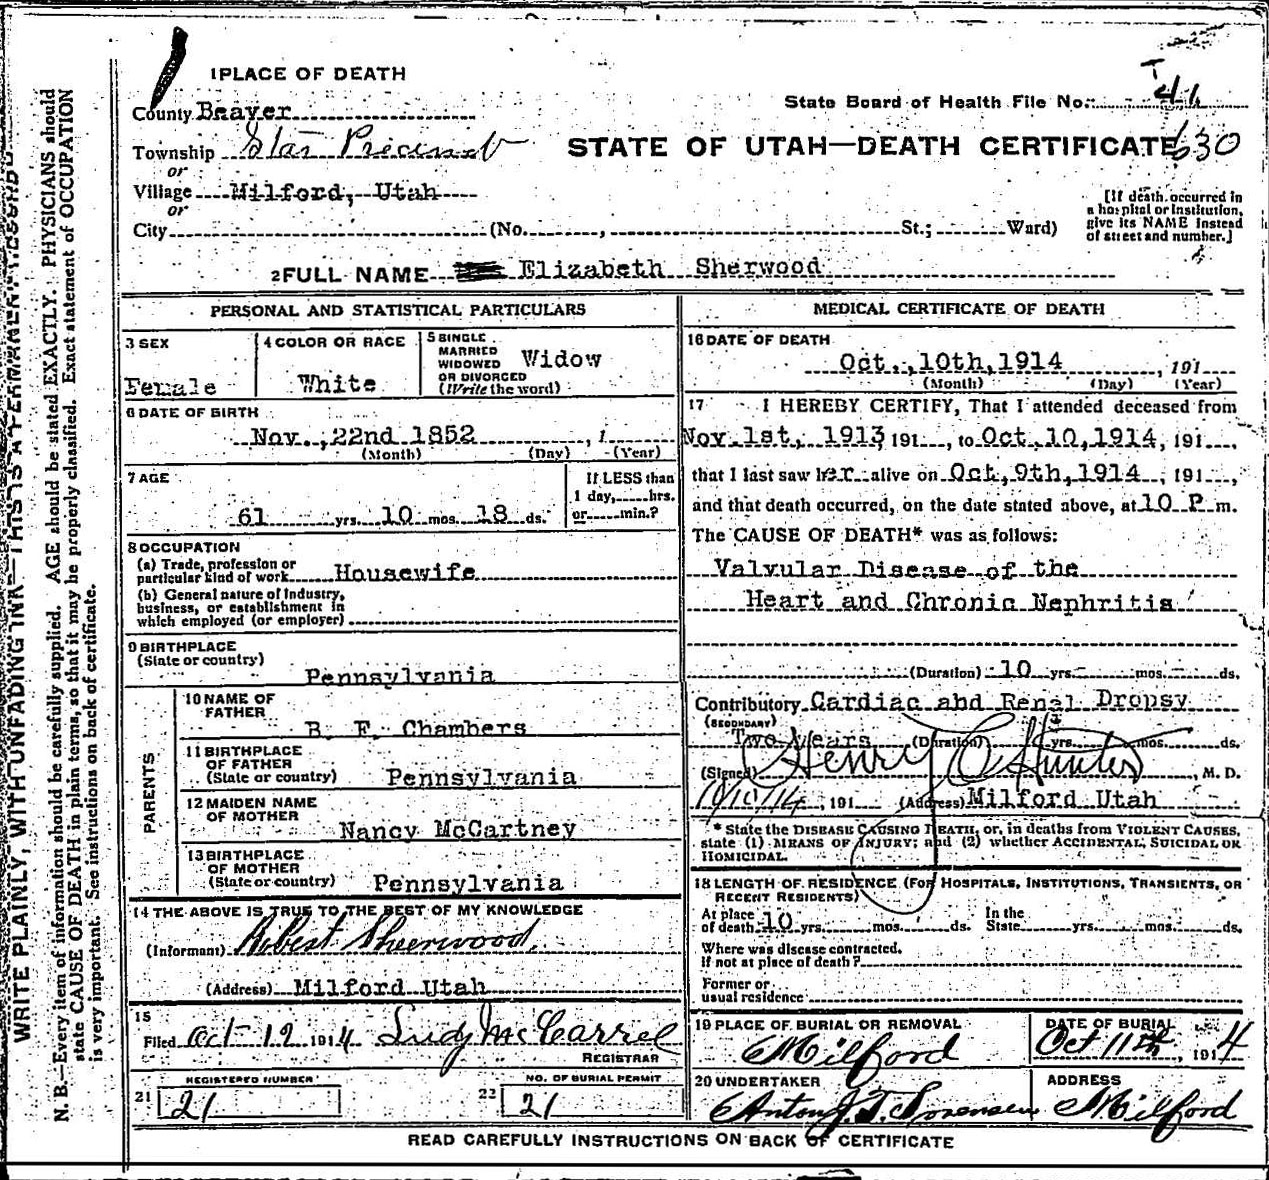 1 PLACE OF DEATH
County Beaver
State Board of Health File No.
Township Star Precinct
630
STATE OF UTAH—DEATH CERTIFICATE
or
Village Milford, Utah
or
City (No. , St.; Ward)
[If death occurred in
a hospital or institution,
give its NAME instead
of street and number.]
2 FULL NAME Elizabeth Sherwood
PERSONAL AND STATISTICAL PARTICULARS
3 SEX
Female
4 COLOR OR RACE
White
5 SINGLE
MARRIED
WIDOWED
OR DIVORCED
(Write the word)
Widow
6 DATE OF BIRTH
Nov., 22nd 1852 , 1
(Month) (Day) (Year)
7 AGE
61 yrs. 10 mos. 18 ds.
If LESS than
1 day, hrs.
or min.?
8 OCCUPATION
(a) Trade, profession or
particular kind of work Housewife
(b) General nature of industry,
business, or establishment in
which employed (or employer)
9 BIRTHPLACE
(State or country)
Pennsylvania
PARENTS
10 NAME OF
FATHER
B. F. Chambers
11 BIRTHPLACE
OF FATHER
(State or country) Pennsylvania
12 MAIDEN NAME
OF MOTHER
Nancy McCartney
13 BIRTHPLACE
OF MOTHER
(State or country) Pennsylvania
14 THE ABOVE IS TRUE TO THE BEST OF MY KNOWLEDGE
(Informant) Robert Sheerwood.
(Address) Milford Utah
15
Filed Oct-12 1914 Judy McCarrel
REGISTRAR
REGISTERED NUMBER
21 21
NO. OF BURIAL PERMIT
22 21
MEDICAL CERTIFICATE OF DEATH
16 DATE OF DEATH
Oct., 10th, 1914 , 191
(Month) (Day) (Year)
17 I HEREBY CERTIFY, That I attended deceased from
Nov 1st, 1913 191 , to Oct, 10, 1914, 191 ,
that I last saw her alive on Oct, 9th, 1914 , 191 ,
and that death occurred, on the date stated above, at 10 P m.
The CAUSE OF DEATH* was as follows:
Valvular Disease of the
Heart and Chronic Nephritis
(Duration) 10 yrs. mos. ds.
Contributory Cardiac abd Renal Dropsy
(SECONDARY)
Two years (Duration) yrs. mos. ds.
(Signed) Henry C. Hunter, M. D.
10/10/14, 191 (Address) Milford Utah
* State the DISEASE CAUSING DEATH, or, in deaths from VIOLENT CAUSES,
state (1) MEANS OF INJURY; and (2) whether ACCIDENTAL, SUICIDAL OR
HOMICIDAL.
18 LENGTH OF RESIDENCE (FOR HOSPITALS, INSTITUTIONS, TRANSIENTS, OR
RECENT RESIDENTS)
At place
of death 10 yrs. mos. ds.
In the
State yrs. mos. ds.
Where was disease contracted,
If not at place of death?
Former or
usual residence
19 PLACE OF BURIAL OR REMOVAL
Milford
DATE OF BURIAL
Oct 11th, 1914
20 UNDERTAKER
Anton J. T. Sorensen
ADDRESS
Milford
READ CAREFULLY INSTRUCTIONS ON BACK OF CERTIFICATE
WRITE PLAINLY, WITH UNFADING INK—THIS IS A PERMANENT RECORD
N. B.—Every item of information should be carefully supplied. AGE should be stated EXACTLY. PHYSICIANS should
state CAUSE OF DEATH in plain terms, so that it may be properly classified. Exact statement of OCCUPATION
is very important. See instructions on back of certificate.